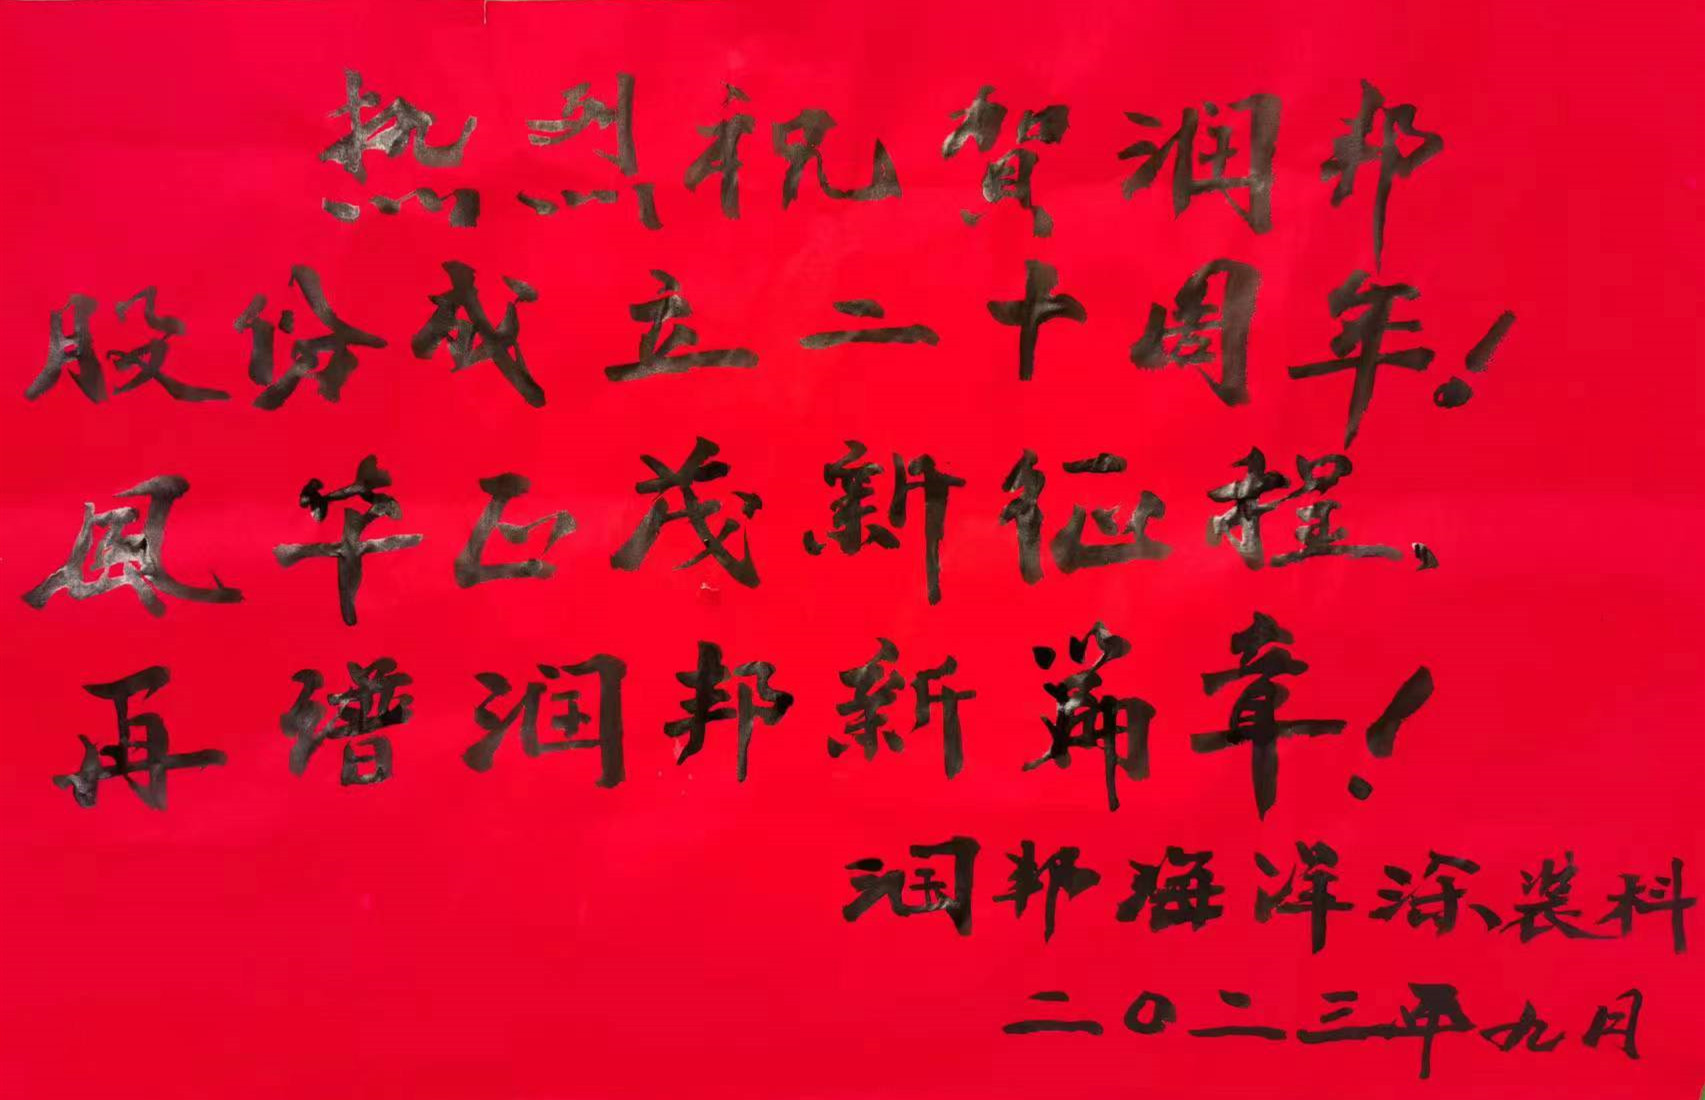 热烈祝贺润邦
股份成立二十周年！
风华正茂新征程、
再谱润邦新篇章！
润邦海洋涂装科
二〇二三年九月